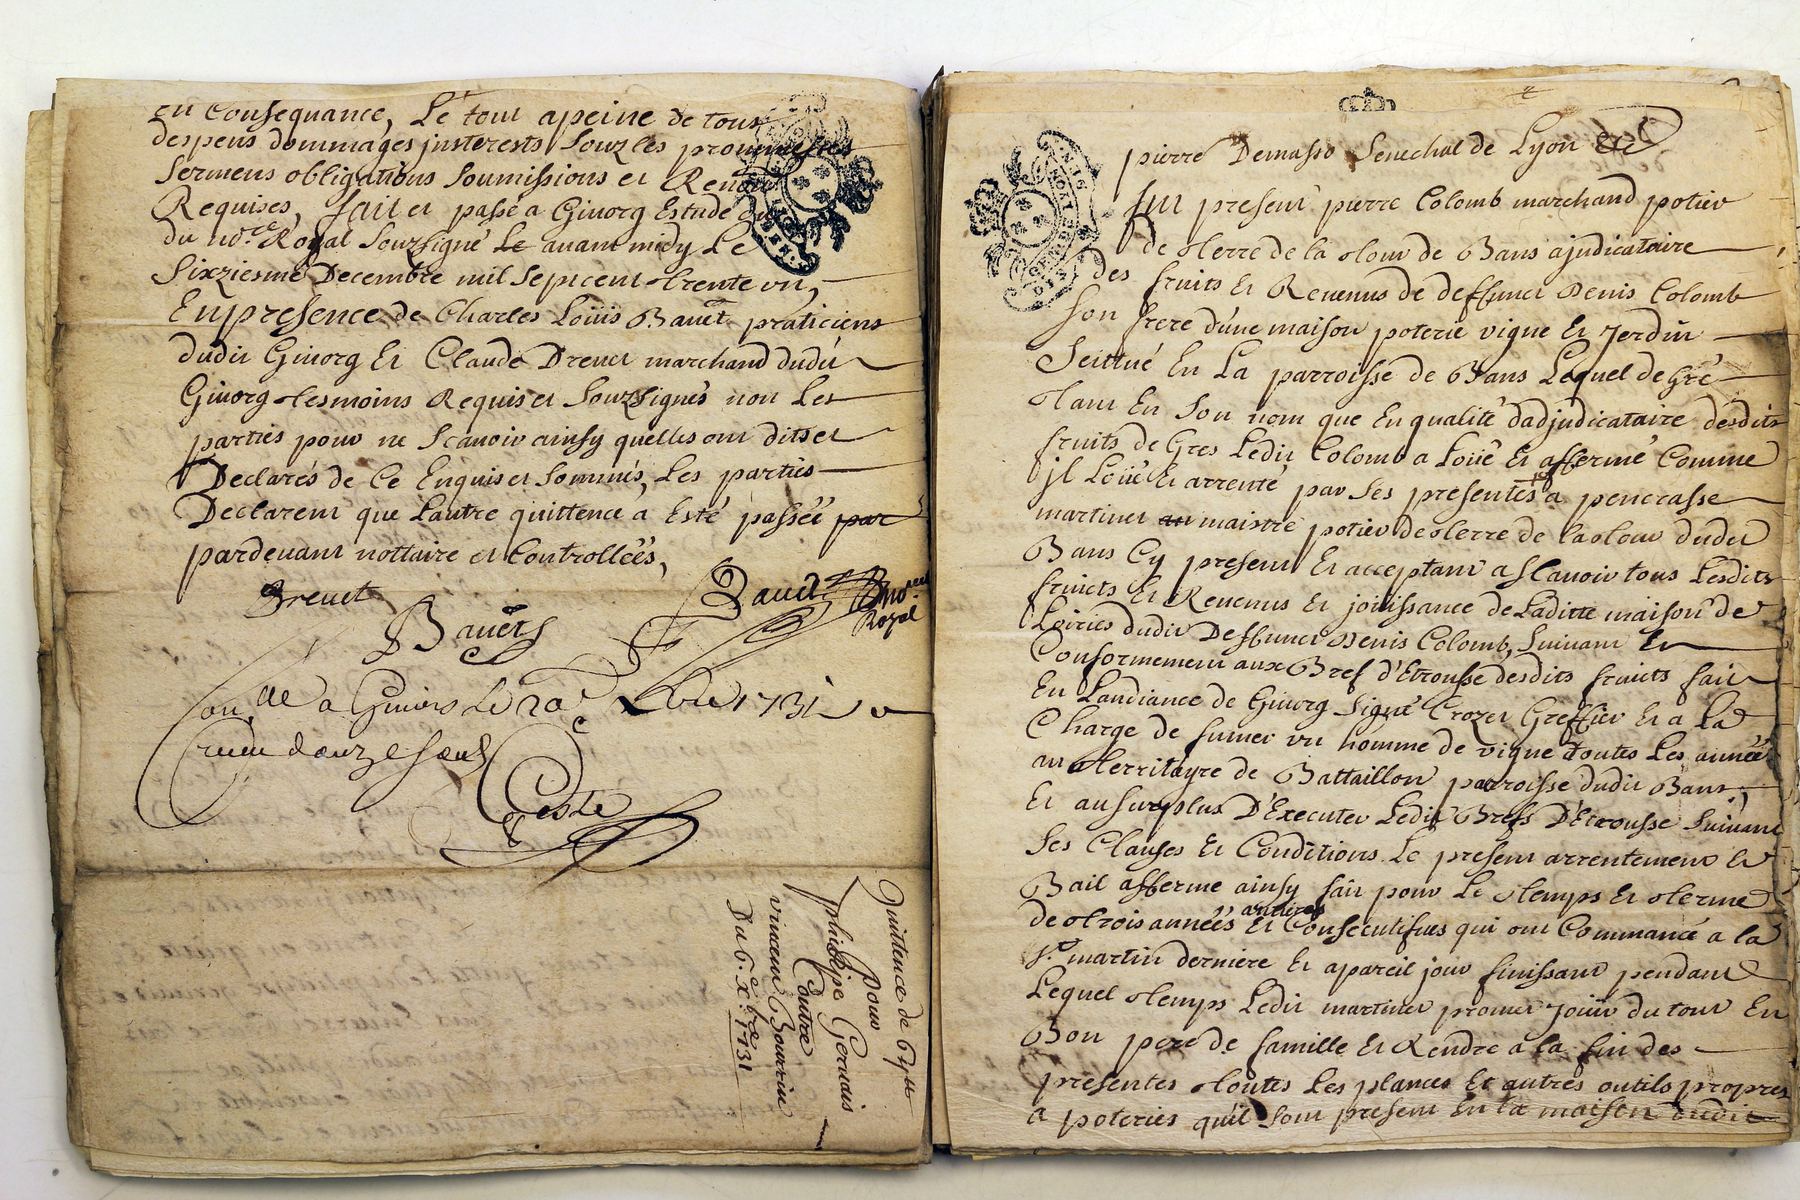 en Consequance, Le tout apeine de tous
despens dommages jnsterests Souz les prommesses
Sermens obligations Soumissions et Renon
Requises, fait et passé a Givorg Estude
du no.re Royal Souzsigné Le avant midy Le
Sixziesme Decembre mil Sepcent trente un,
En presence de Charles Loüis Bavet praticiens
dudit Givorg Et Claude Drevet marchand dudit
Givorg tesmoins Requis et Souzsignés non Les
parties pour ne Scavoir ainsy quelles ont dits et
Declarés de Ce Enquis et Sommés, Les parties
Declarent que Lautre quittence a Esté passéé par
pardevant nottaire et Controlléés,
Drevet
Bavet
Bavet no.re
Royal
a Givors Le 20e 1731
Receu douze sous
Coste
Quittence de 69ll
Pour
phielipe Gerudis
Contre
vincent Bourin
Du 6.e Xbre 1731
pierre Demasso Senechal de Lyon
fut present pierre Colomb marchand potier
de terre de la tour de Bans ajudicataire
des fruits Et Revenus de deffunct Denis Colomb
Son frere d'une maison poterie vigne Et Jerdin
Scittué En La parroisse de Bans Lequel de Gré
tant En Son nom que En qualité dadjudicataire desdits
fruits de Gres Ledit Colomb a Loüé Et affermé Comme
jl Loüé Et arrenté par Ses presentes a pencrasse
martinet maistre potier de terre de la tour dudit
Bans Cy present Et acceptant a Scavoir tous Lesdits
fruicts Et Revenus Et joüissance de Laditte maison de
Loiries dudit Deffunct Denis Colomb, Suivant Et
Conformement aux Bref d'Etrousse desdits fruicts fait
En Landiance de Givorg Signé Crozet Greffier Et a La
Charge de fumer un homme de vigne toutes Les annéés
au territoyre de Battaillon parroisse dudit Bans,
Et au Surplus D'Executer Ledit Brefs D'Etrousse Suivant
Ses Clauses Et Conditions Le present arrentement Et
Bail afferme ainsy fait pour Le temps Et terme
de trois annéés antieres Et Consecutifves qui ont Commancé a la
St. martin derniere Et apareil jour finissant pendant
Lequel temps Ledit martinet promet Joüir du tout En
Bon pere de famille Et Rendre a la fin des
presentes toutes Les plances Et autres outils propres
a poteries quil Sont present En la maison dudit